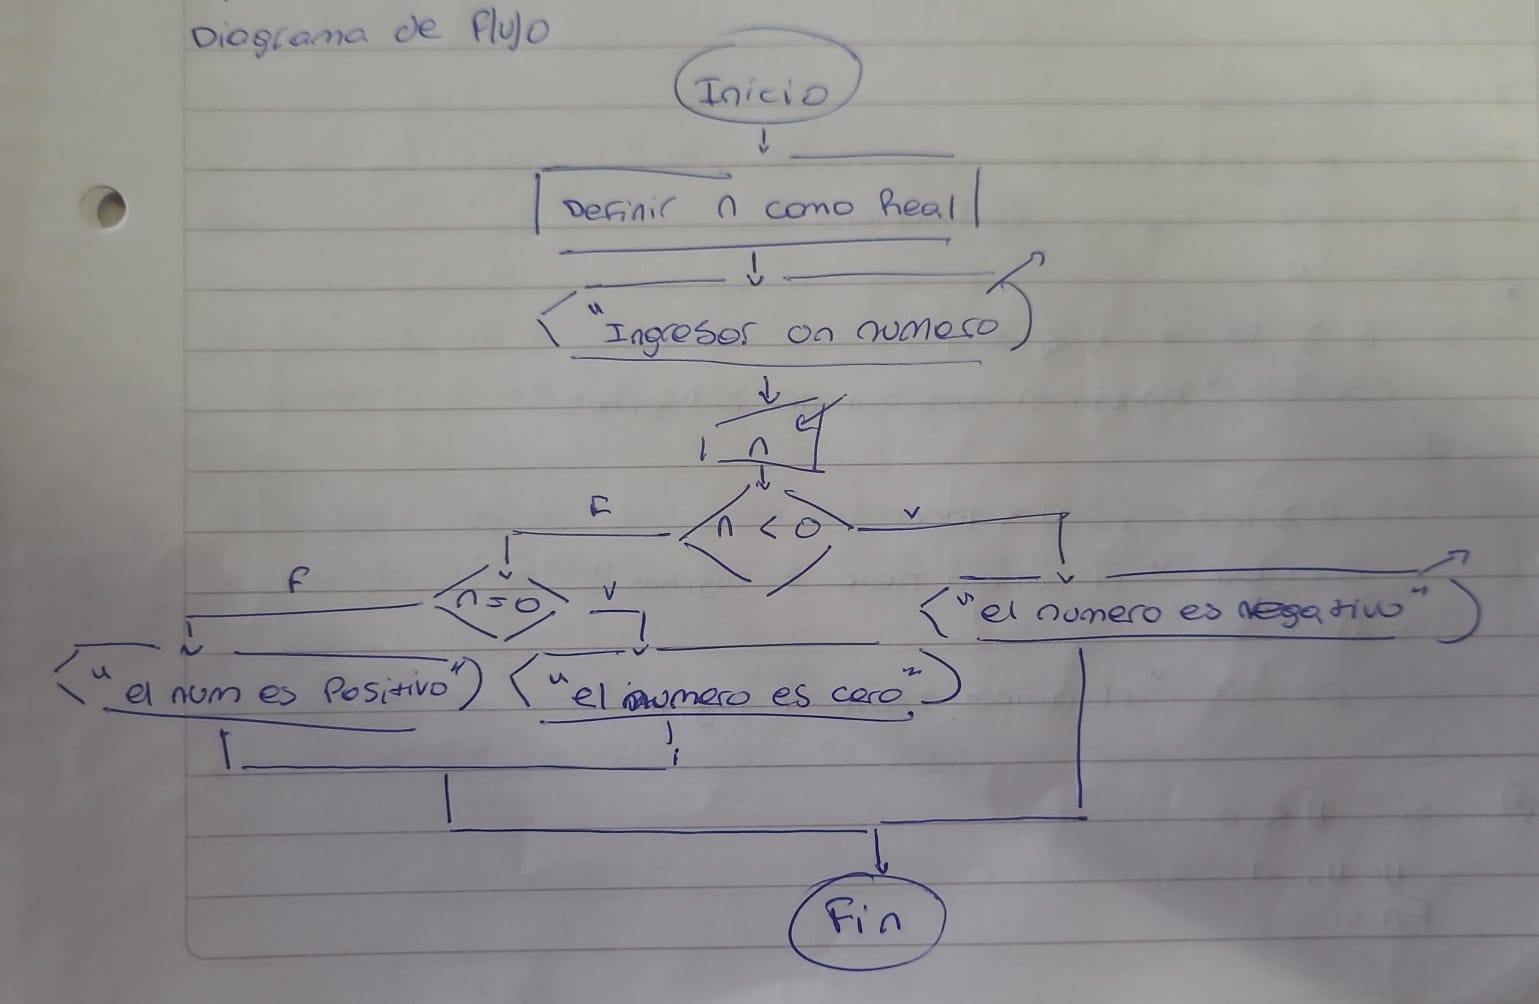 Diagrama de Flujo
Inicio
Definir n como Real
"Ingresar un numero
n
n < 0
F
v
n = 0
F
v
"el numero es negativo"
"el num es Positivo"
"el numero es cero"
Fin